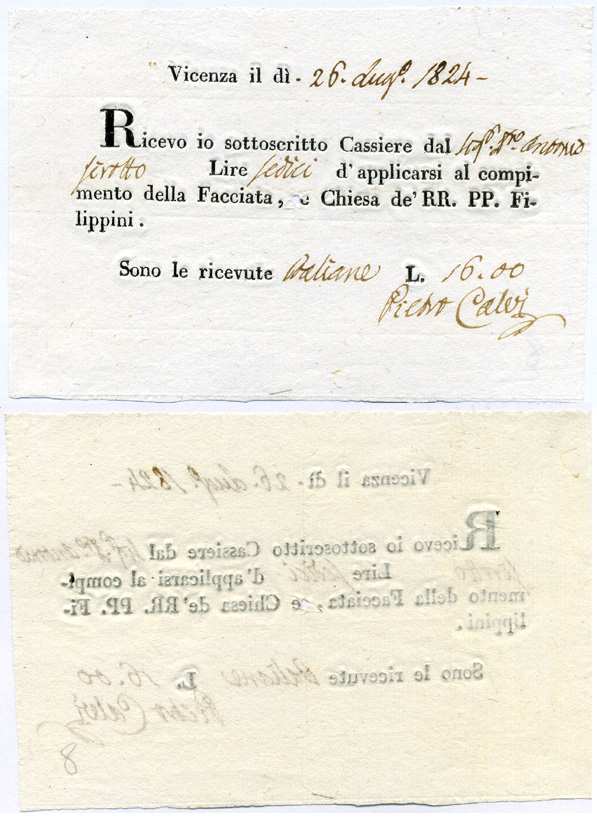 Vicenza il dì - 26. Lug.º 1824 -
Ricevo io sottoscritto Cassiere dal Antonio
Lire sedici d'applicarsi al compi-
mento della Facciata, e Chiesa de' RR. PP. Fi-
lippini.
Sono le ricevute Italiane L. 16.00
Pietro
Vicenza il dì - 26. Lug.º 1824 -
Ricevo io sottoscritto Cassiere dal Antonio
Lire sedici d'applicarsi al compi-
mento della Facciata, e Chiesa de' RR. PP. Fi-
lippini.
Sono le ricevute Italiane L. 16.00
Pietro
8